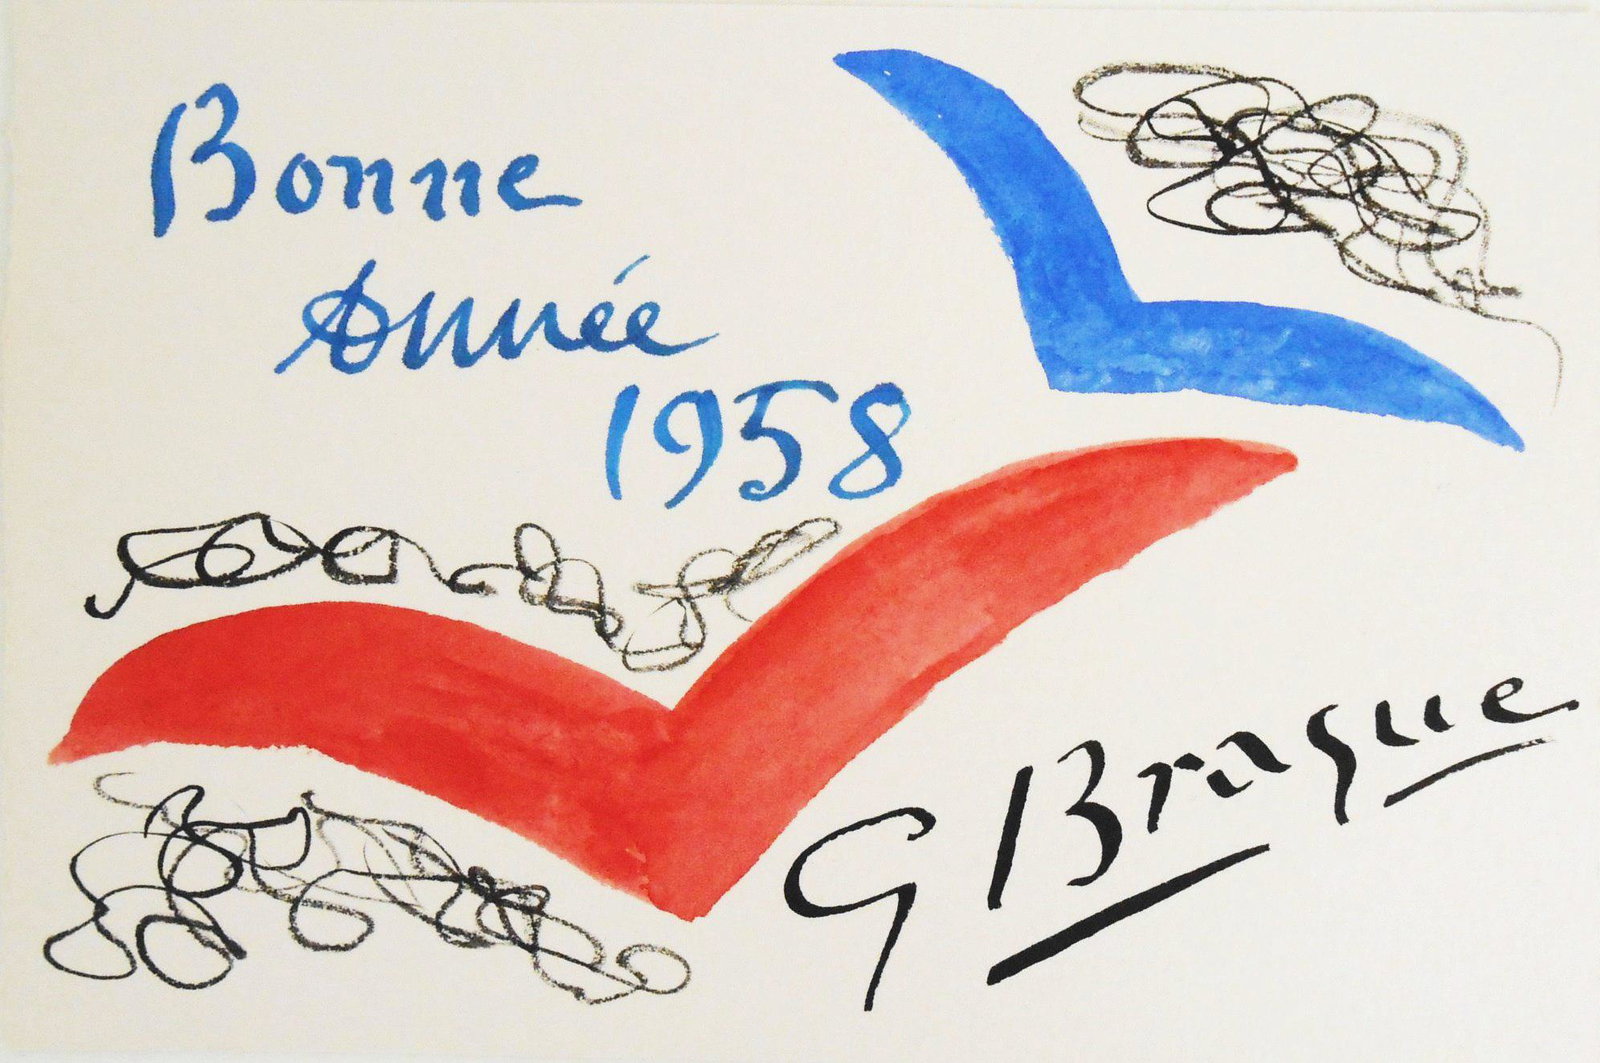 Bonne
Année
1958
G Braque